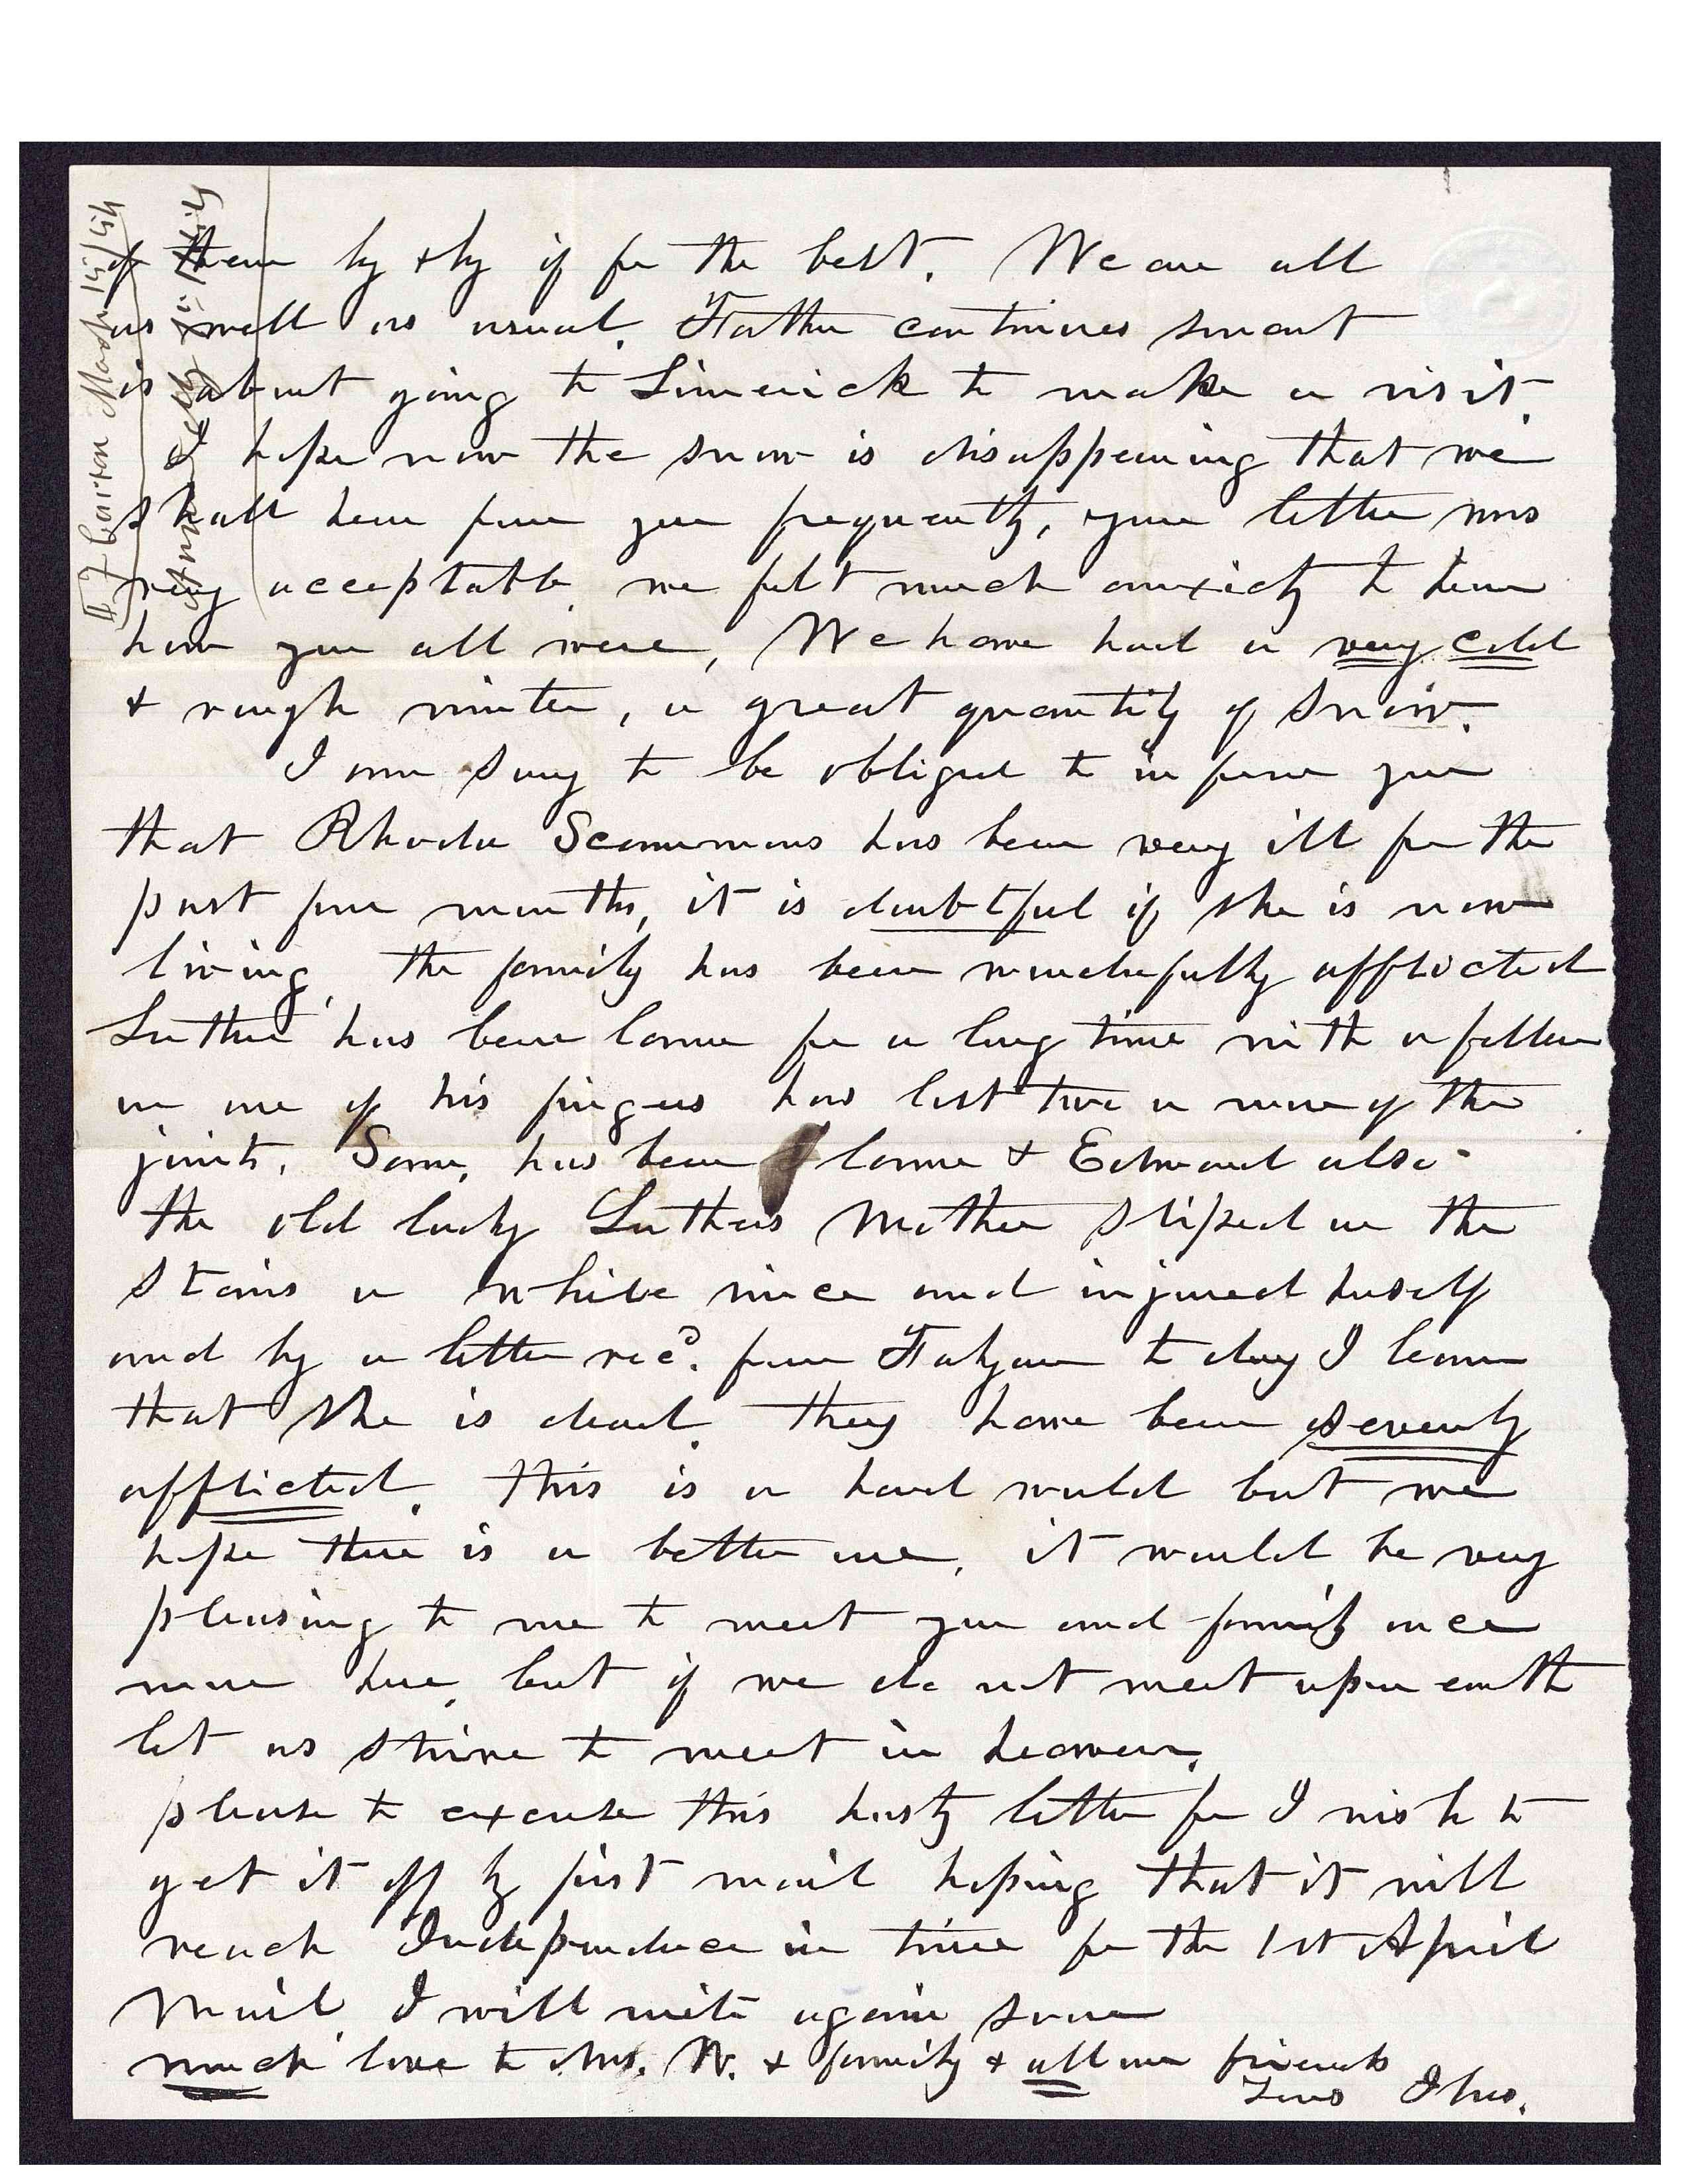 of them by & by if for the best. We are all
as well as usual. Father continues smart
is about going to Limerick to make a visit.
I hope now the snow is disappearing that we
shall hear from you frequently, your letter was
very acceptable, we felt much anxiety to hear
how you all were, We have had a very cold
& rough winter, a great quantity of snow.
I am sorry to be obliged to inform you
that Rhoda Scammons has been very ill for the
past four months, it is doubtful if she is now
living, the family has been wonderfully afflicted
Luther has been lame for a long time with a fellon
on one of his fingers has lost two or more of the
joints. Saml, has been lame & Edmond also
the old lady Luthers Mother sliped on the
stairs a while since and injured herself
and by a letter recd. from to day I learn
that she is dead. they have been severely
afflicted. this is a hard world but we
hope there is a better one, it would be very
pleasing to me to meet you and family once
more here, but if we do not meet upon earth
let us strive to meet in heaven.
please to excuse this hasty letter for I wish to
get it off by first mail hoping that it will
reach Independence in time for the 1st April
Mail I will write again soon
much love to Mrs. W. & family & all our friends
Yours Thos.
March 15/54